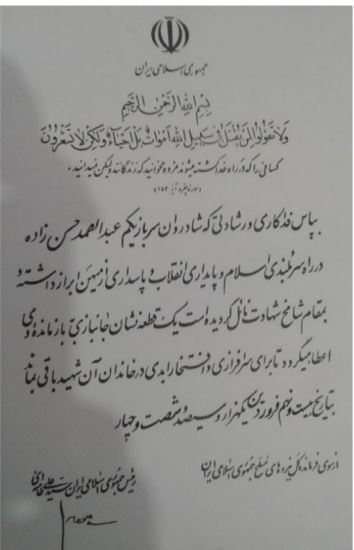 جمهوری اسلامی ایران
بسم الله الرحمن الرحیم
ولا تقولوا لمن یقتل فی سبیل الله اموات بل احیاء ولکن لا تشعرون
کسانی را که در راه خدا کشته میشوند مرده مخوانید که زندگانند ولیکن نمیدانید.
(سوره بقره آیه ۱۵۴)
بپاس فداکاری و رشادتی که شادروان سرباز یکم عبدالصمد حسن زاده
در راه سربلندی اسلام و پایداری انقلاب و پاسداری از میهن ابراز داشته و
بمقام شامخ شهادت نائل گردیده است یک قطعه نشان جانبازی بازمانده وی
اعطا میگردد تا برای سرافرازی و افتخار ابدی در خاندان آن شهید باقی بماند
بتاریخ بیست و نهم فروردین یکهزار و سیصد و شصت و چهار
از سوی فرمانده کل نیروهای مسلح جمهوری اسلامی ایران
رئیس جمهوری اسلامی ایران سید علی خامنه‌ای